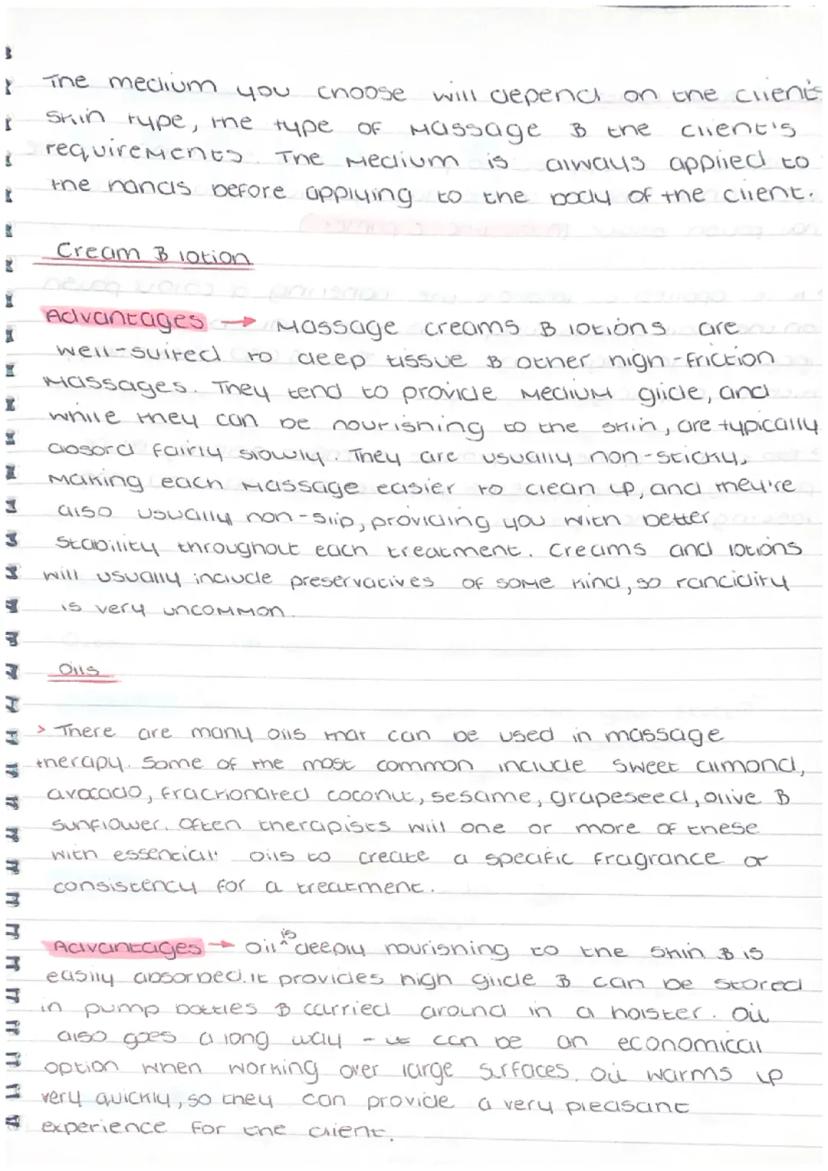 The medium you choose will depend on the client's
skin type, the type of massage & the client's
requirements. The medium is always applied to
the hands before applying to the body of the client.
Cream & lotion
Advantages → Massage creams & lotions are
well-suited to deep tissue & other high-friction
massages. They tend to provide medium glide, and
while they can be nourishing to the skin, are typically
absord fairly slowly. They are usually non-sticky,
making each massage easier to clean up, and they're
also usually non-slip, providing you with better
stability throughout each treatment. Creams and lotions
will usually include preservatives of some kind, so rancidity
is very uncommon.
Oils
> There are many oils that can be used in massage
therapy. Some of the most common include sweet almond,
avocado, fractionated coconut, sesame, grapeseed, olive &
sunflower. Often therapists will one or more of these
with essential oils to create a specific fragrance or
consistency for a treatment.
Advantages → Oil ^is deeply nourishing to the skin & is
easily absorbed. It provides high glide & can be stored
in pump bottles & carried around in a holster. Oil
also goes a long way - it can be an economical
option when working over large surfaces. Oil warms up
very quickly, so they can provide a very pleasant
experience for the client.